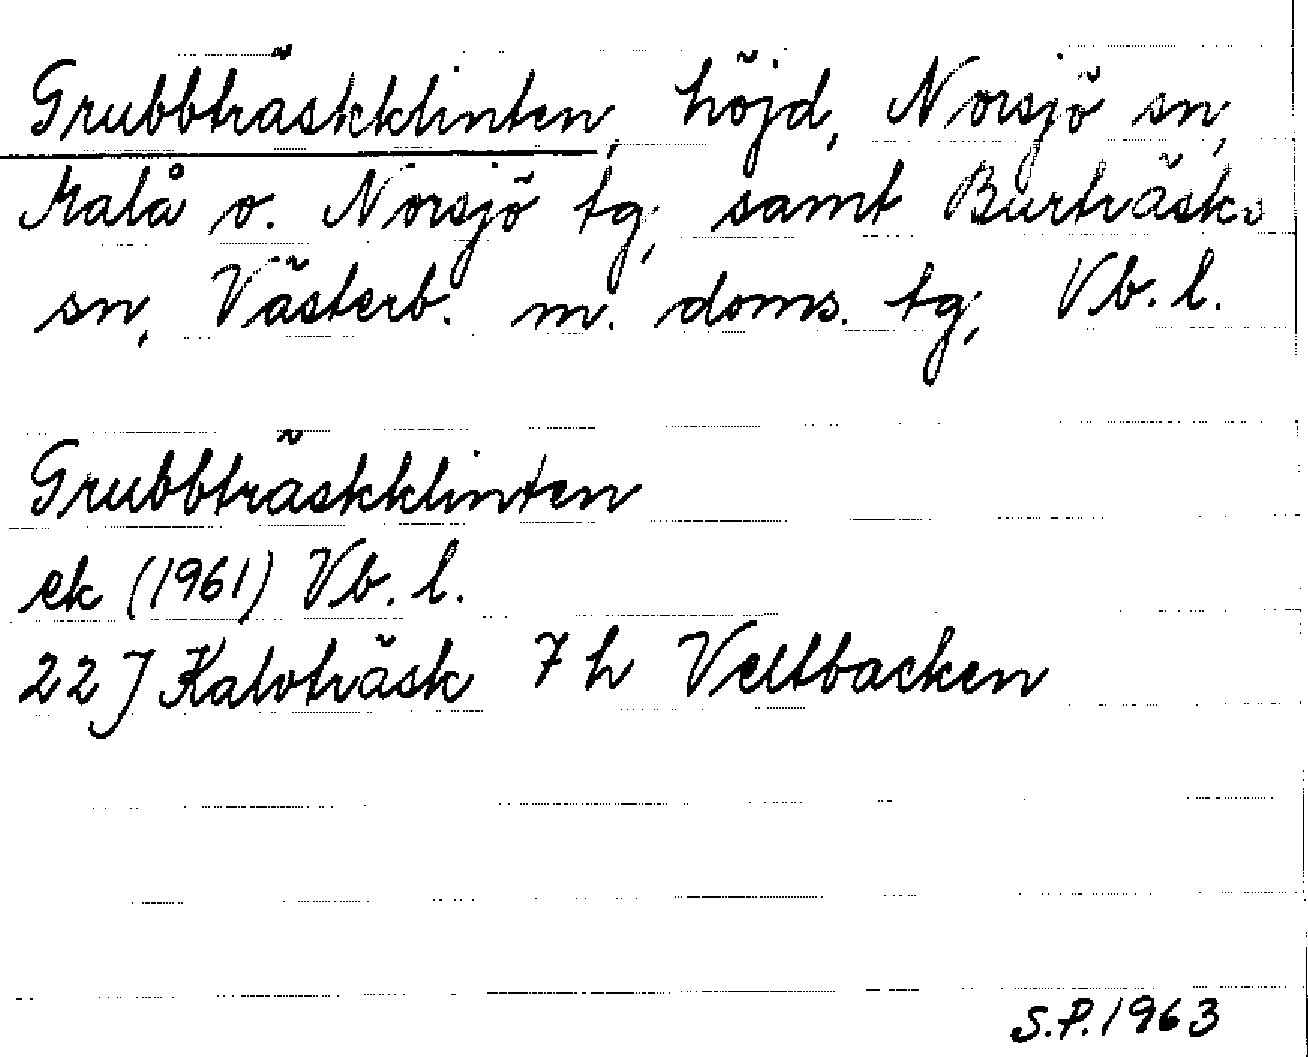 Grubbträskklinten, höjd, Norsjö sn,
Malå o. Norsjö tg, samt Burträsks
sn, Västerb. m. doms. tg, Vb. l.
Grubbträskklinten
ek (1961) Vb. l.
22 J Kalvträsk 7 h Veltbacken
S.P. 1963